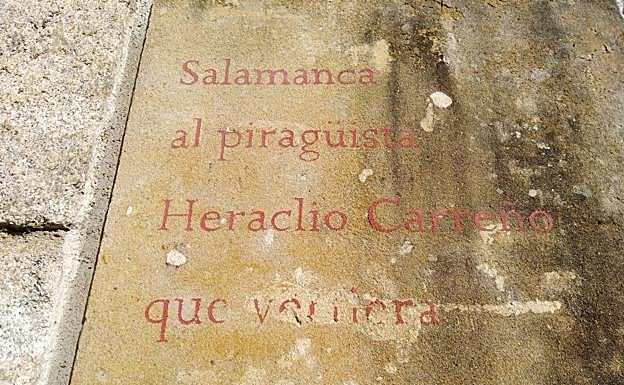 Salamanca
al piragüista
Heraclio Carreño
que